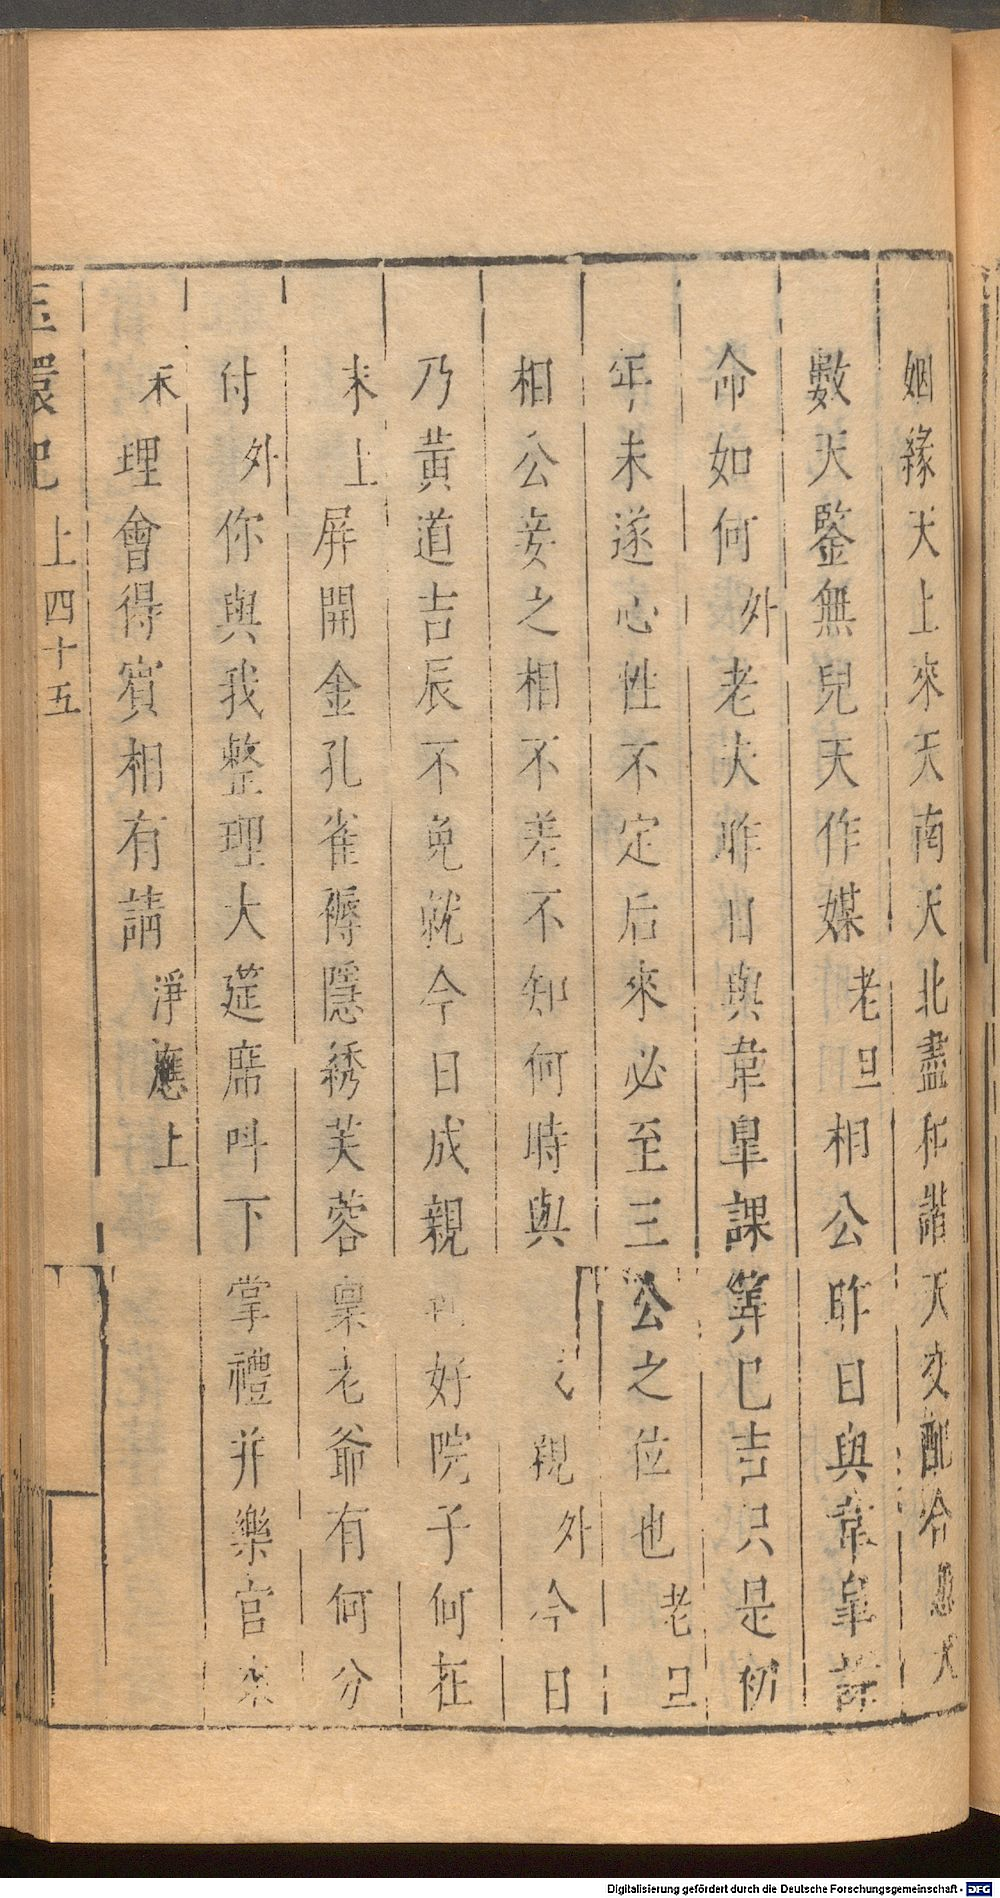 姻緣天上來天南天北盡和諧天交配合愚人
數天鑒無兒天作媒老旦相公昨日與韋皐課
命如何外老夫昨日與韋皐課筭已吉只是初
年未遂心性不定后來必至三公之位也老旦
相公妾之相不差不知何時與親外今日
乃黃道吉辰不免就今日成親好院子何在
末上屏開金孔雀褥隱綉芙蓉稟老爺有何分
付外你與我整理大筵席呌下掌禮并樂官來
末理會得賓相有請淨應上
玉環記上四十五
Digitalisierung gefördert durch die Deutsche Forschungsgemeinschaft - DFG